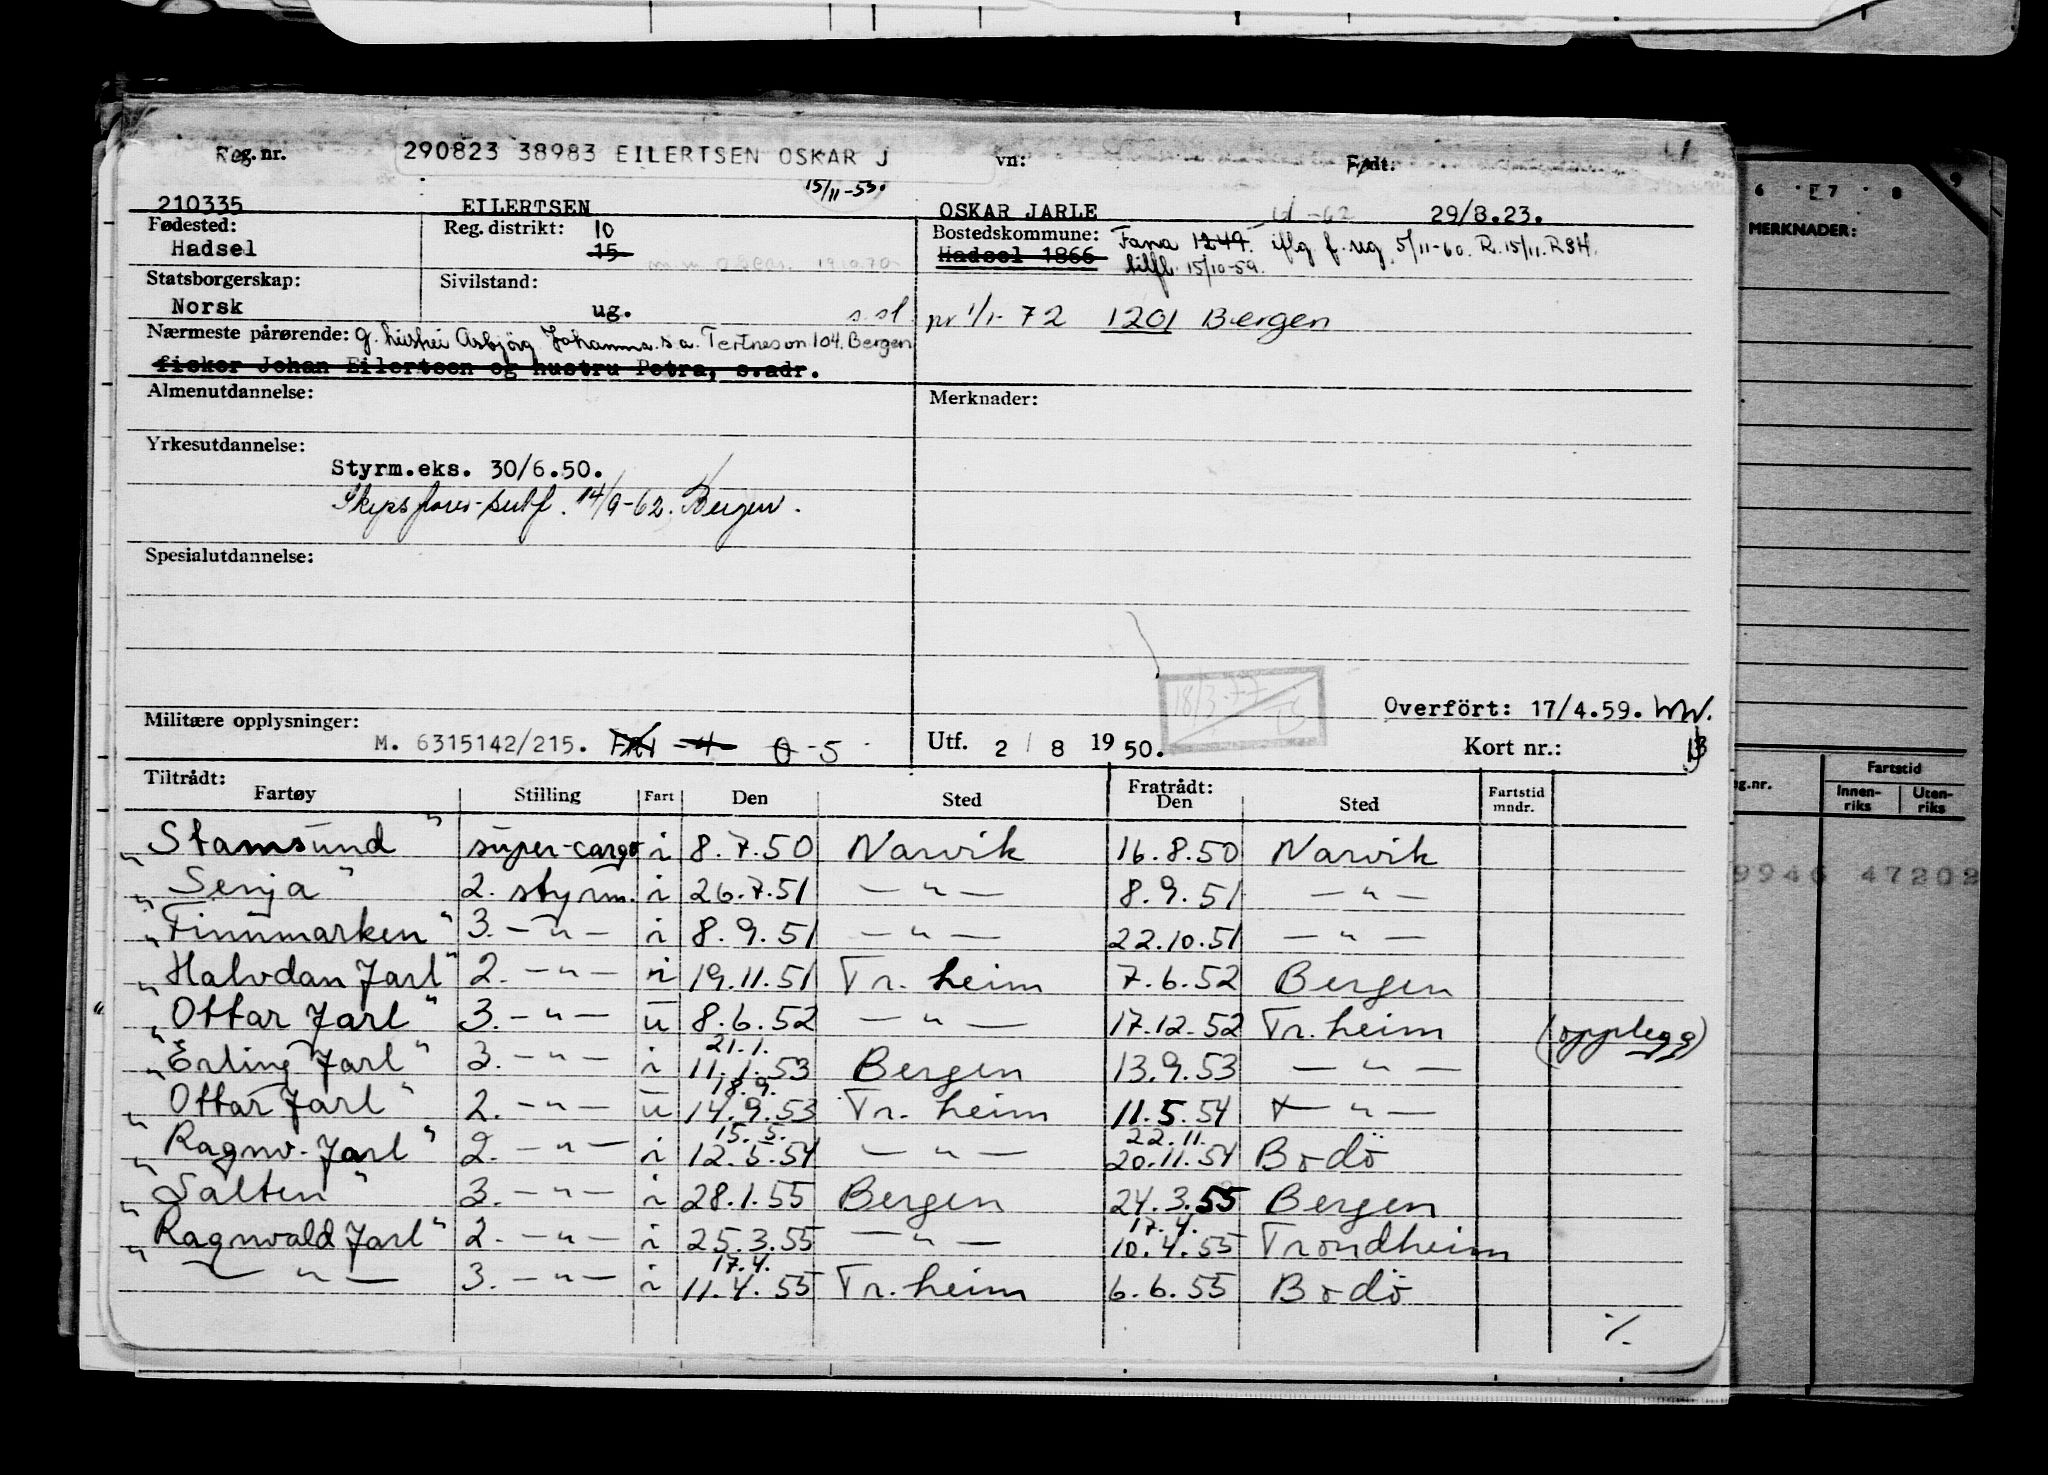 Reg. nr. 290823 38983 EILERTSEN OSKAR J vn: Født:
15/11-53.
210335 EILERTSEN OSKAR JARLE -62 29/8.23.
Fødested: Reg. distrikt: 10 Bostedskommune: Fana 1249. iflg f. ug 5/11-60. R. 15/11. RSH.
Hadsel 15 Hadsel 1866 tilfl. 15/10-59.
Statsborgerskap: Sivilstand:
Norsk ug. s.sl. pr 1/1-72 1201 Bergen
Nærmeste pårørende: g. hustru Asbjörg Johanna s.a. Tertnesvn 104. Bergen
fisker Johan Eilertsen og hustru Petra, s.adr.
Almenutdannelse: Merknader:
Yrkesutdannelse:
Styrm.eks. 30/6.50.
Skipsförer-sertf. 14/9-62. Bergen.
Spesialutdannelse:
18/3-77
Overfört: 17/4.59. WW.
Militære opplysninger:
M. 6315142/215. -4 0-5 Utf. 2/8 1950. Kort nr.:
Tiltrådt: Fratrådt:
Fartøy Stilling Fart Den Sted Den Sted Fartstid mndr.
"Stamsund" super-cargo i 8.7.50 Narvik 16.8.50 Narvik
"Senja" 2. styrm. i 26.7.51 — " — 8.9.51 — " —
"Finnmarken" 3. — " — i 8.9.51 — " — 22.10.51 — " —
"Halvdan Jarl" 2. — " — i 19.11.51 Tr. heim 7.6.52 Bergen
"Ottar Jarl" 3. — " — u 8.6.52 — " — 17.12.52 Tr. heim (opplegg)
21.1.
"Erling Jarl" 3. — " — i 11.1.53 Bergen 13.9.53 — " —
18.9.
"Ottar Jarl" 2. — " — u 14.9.53 Tr. heim 11.5.54 — " —
15.5. 22.11.
"Ragnv. Jarl" 2. — " — i 12.5.54 — " — 20.11.54 Bodö
"Salten" 3. — " — i 28.1.55 Bergen 24.3.55 Bergen
17.4.
"Ragnvald Jarl" 2. — " — i 25.3.55 — " — 10.4.55 Trondheim
17.4.
" — " — 3. — " — i 11.4.55 Tr. heim 6.6.55 Bodö
%
6 7 8 9
MERKNADER:
g.nr. Fartstid
Innen-riks Uten-riks
9946 47202